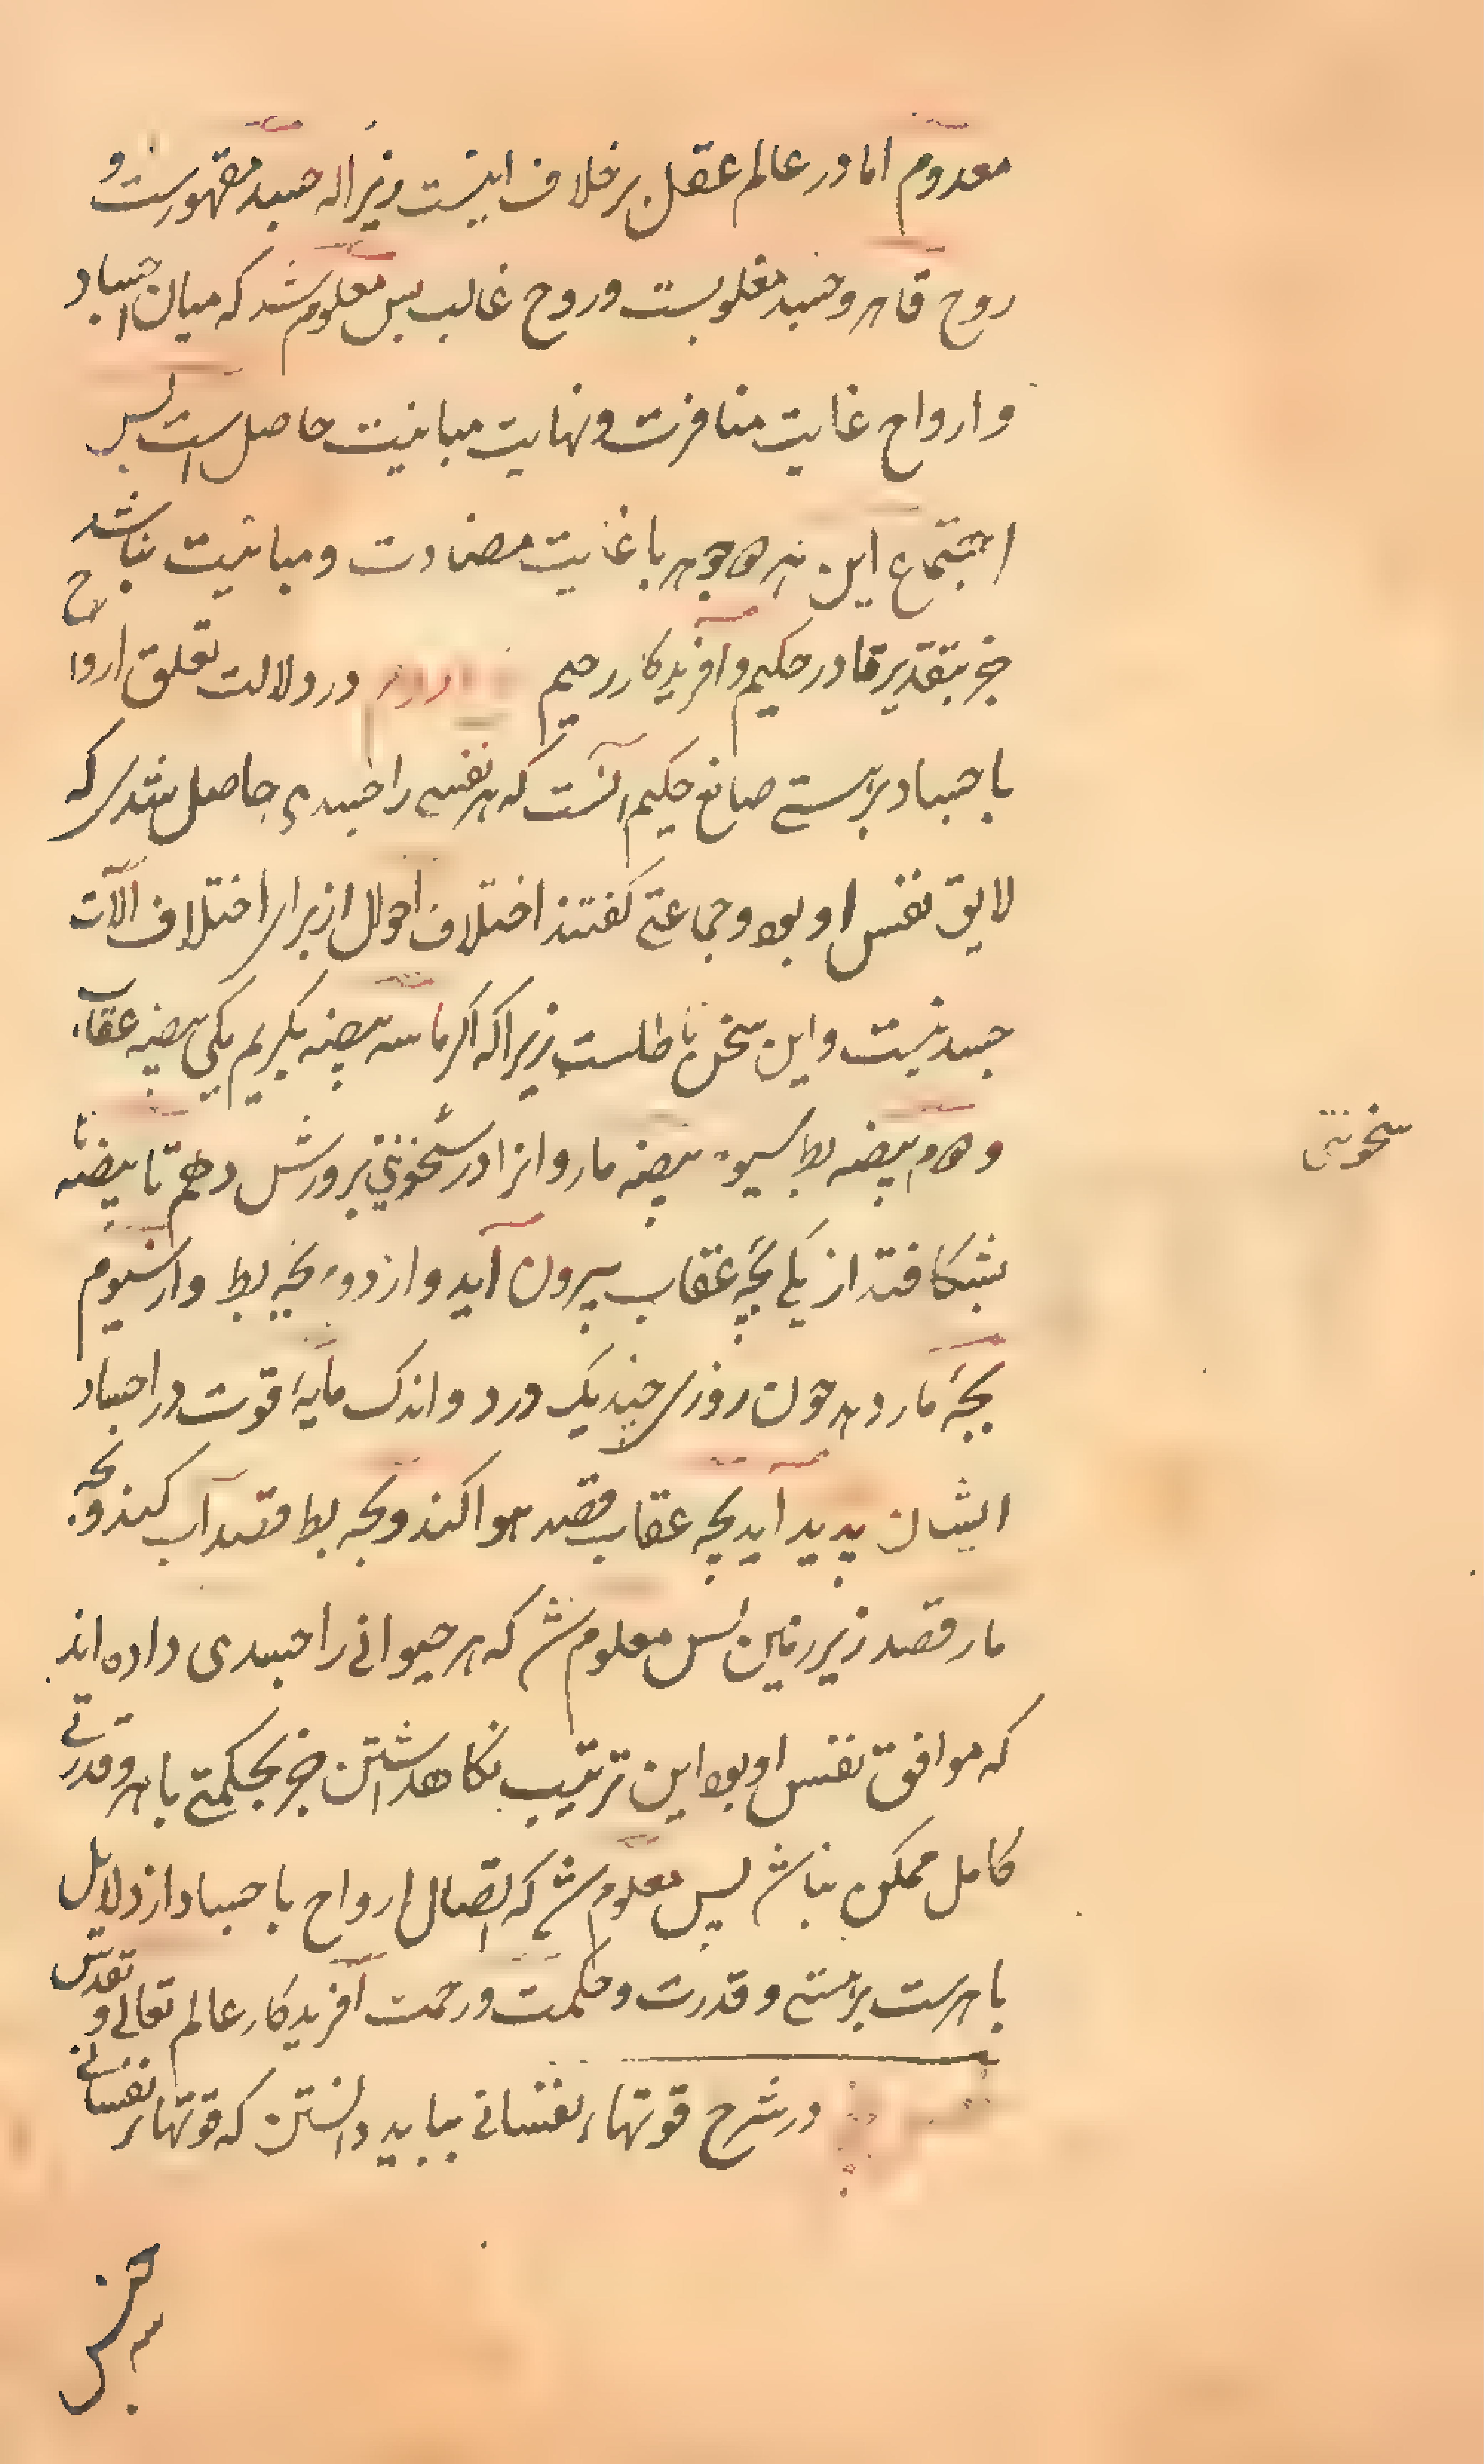 معدوم اما در عالم عقل برخلاف اینست زیرا که جسد مقهورست و
روح قاهر و جسد مغلوبست و روح غالب پس معلوم شد که میان اجساد
و ارواح غایت منافرت و نهایت مباینت حاصل است پس
اجتماع این هر دو جوهر با غایت مضادت و مباینت نباشد
جز بتقدیر قادر حکیم و آفریدکار رحیم در دلالت تعلق ارواح
باجساد بر هستی صانع حکیم آنست که هر نفسی را جسدی حاصل شد که
لایق نفس او بود و جماعتی کفتند اختلاف احوال از برای اختلاف آلات
جسد نیست و این سخن باطلست زیرا که اکر ما سه بیضه بکیریم یکی بیضه عقاب
و دوم بیضه بط سیوم بیضه مار و انرا در سخونتی پرورش دهم تا بیضها
بشکافتد از یکی بچه عقاب بیرون آید و از دوم بچه بط و از سیوم
بچه مار و هر چون روزی چند یک درد و اندک مایه قوت در اجساد
ایشان پدید آید بچه عقاب قصد هوا کند و بچه بط قصد آب کند و بچه
مار قصد زیر زمین پس معلوم شد که هر حیوانی را جسدی داده اند
که موافق نفس او بود این ترتیب نکاهداشتن جز بحکمتی باهر و قدرتی
کامل ممکن نباشد پس معلوم شد که اتصال ارواح باجساد از دلایل
باهرست بر هستی و قدرت و حکمت و رحمت آفریدکار عالم تعالی و تقدس
در شرح قوتهاء نفسانی بباید دانستن که قوتهاء نفسانی
سخونتی